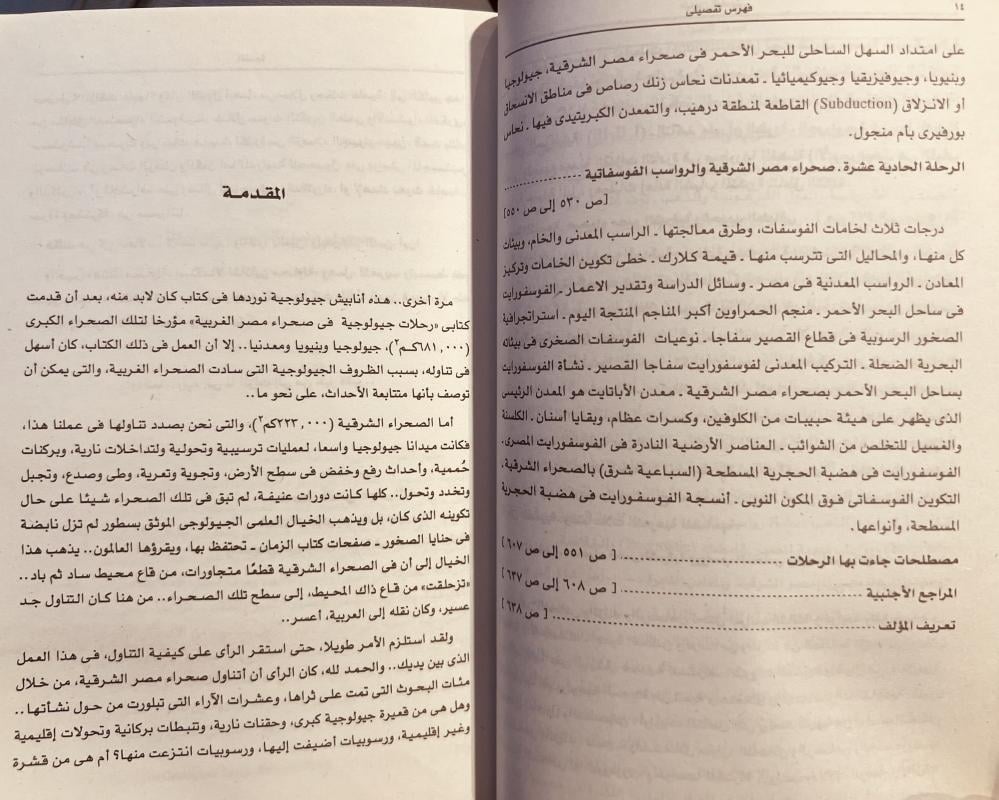 ١٤
فهرس تفصيلى
على امتداد السهل الساحلى للبحر الأحمر فى صحراء مصر الشرقية، جيولوجيا
وبنيويا، وجيوفيزيقيا وجيوكيميائيا ـ تمعدنات نحاس زنك رصاص فى مناطق الانسحاق
أو الانزلاق (Subduction) القاطعة لمنطقة درهيب، والتمعدن الكبريتيدى فيها ـ نحاس
بورفيرى بأم منجول.
الرحلة الحادية عشرة ـ صحراء مصر الشرقية والرواسب الفوسفاتية
[ص ٥٣٠ إلى ص ٥٥٠]
درجات ثلاث لخامات الفوسفات، وطرق معالجتها ـ الراسب المعدنى والخام، وبيئات
كل منها، والمحاليل التى تترسب منها ـ قيمة كلارك ـ خطى تكوين الخامات وتركيز
المعادن ـ الرواسب المعدنية فى مصر ـ وسائل الدراسة وتقدير الاعمار ـ الفوسفورايت
فى ساحل البحر الأحمر ـ منجم الحمراوين أكبر المناجم المنتجة اليوم ـ استراتجرافية
الصخور الرسوبية فى قطاع القصير سفاجا ـ نوعيات الفوسفات الصخرى فى بيئاته
البحرية الضحلة ـ التركيب المعدنى لفوسفورايت سفاجا القصير ـ نشأة الفوسفورايت
بساحل البحر الأحمر بصحراء مصر الشرقية ـ معدن الأباتايت هو المعدن الرئيسى
الذى يظهر على هيئة حبيبات من الكلوفين، وكسرات عظام، وبقايا أسنان ـ الكلسنة
والغسيل للتخلص من الشوائب ـ العناصر الأرضية النادرة فى الفوسفورايت المصرى.
الفوسفورايت فى هضبة الحجرية المسطحة (السباعية شرق) بالصحراء الشرقية.
التكوين الفوسفاتى فوق المكون النوبى ـ أنسجة الفوسفورايت فى هضبة الحجرية
المسطحة، وأنواعها.
مصطلحات جاءت بها الرحلات ........ [ ص ٥٥١ إلى ص ٦٠٧]
المراجع الأجنبية ........ [ ص ٦٠٨ إلى ص ٦٣٧]
تعريف المؤلف ........ [ ص ٦٣٨]
المقدمة
مرة أخرى.. هذه أنابيش جيولوجية نوردها فى كتاب كان لابد منه، بعد أن قدمت
كتابى «رحلات جيولوجية فى صحراء مصر الغربية» مؤرخا لتلك الصحراء الكبرى
(٦٨١,٠٠٠كم٢)، جيولوجيا وبنيويا ومعدنيا.. إلا أن العمل فى ذلك الكتاب، كان أسهل
فى تناوله، بسبب الظروف الجيولوجية التى سادت الصحراء الغربية، والتى يمكن أن
توصف بأنها متتابعة الأحداث، على نحو ما..
أما الصحراء الشرقية (٢٢٣,٠٠٠كم٢)، والتى نحن بصدد تناولها فى عملنا هذا،
فكانت ميدانا جيولوجيا واسعا، لعمليات ترسيبية وتحولية ولتداخلات نارية، وبركنات
حُممية، وأحداث رفع وخفض فى سطح الأرض، وتجوية وتعرية، وطى وصدع، وتجبل
وتخدد وتحول.. كلها كانت دورات عنيفة، لم تبق فى تلك الصحراء شيئا على حال
تكوينه الذى كان، بل ويذهب الخيال العلمى الجيولوجى الموثق بسطور لم تزل نابضة
فى حنايا الصخور ـ صفحات كتاب الزمان ـ تحتفظ بها، ويقرؤها العالمون.. يذهب هذا
الخيال إلى أن فى الصحراء الشرقية قطعًا متجاورات، من قاع محيط ساد ثم باد..
«تزحلقت» من قاع ذاك المحيط، إلى سطح تلك الصحراء.. من هنا كان التناول جد
عسير، وكان نقله إلى العربية، أعسر..
ولقد استلزم الأمر طويلا، حتى استقر الرأى على كيفية التناول، فى هذا العمل
الذى بين يديك.. والحمد لله، كان الرأى أن أتناول صحراء مصر الشرقية، من خلال
مئات البحوث التى تمت على ثراها، وعشرات الآراء التى تبلورت من حول نشأتها..
وهل هى من قعيرة جيولوجية كبرى، وحقنات نارية، وتنبطات بركانية وتحولات إقليمية
وغير إقليمية، ورسوبيات أضيفت إليها، ورسوبيات انتزعت منها؟ أم هى من قشرة